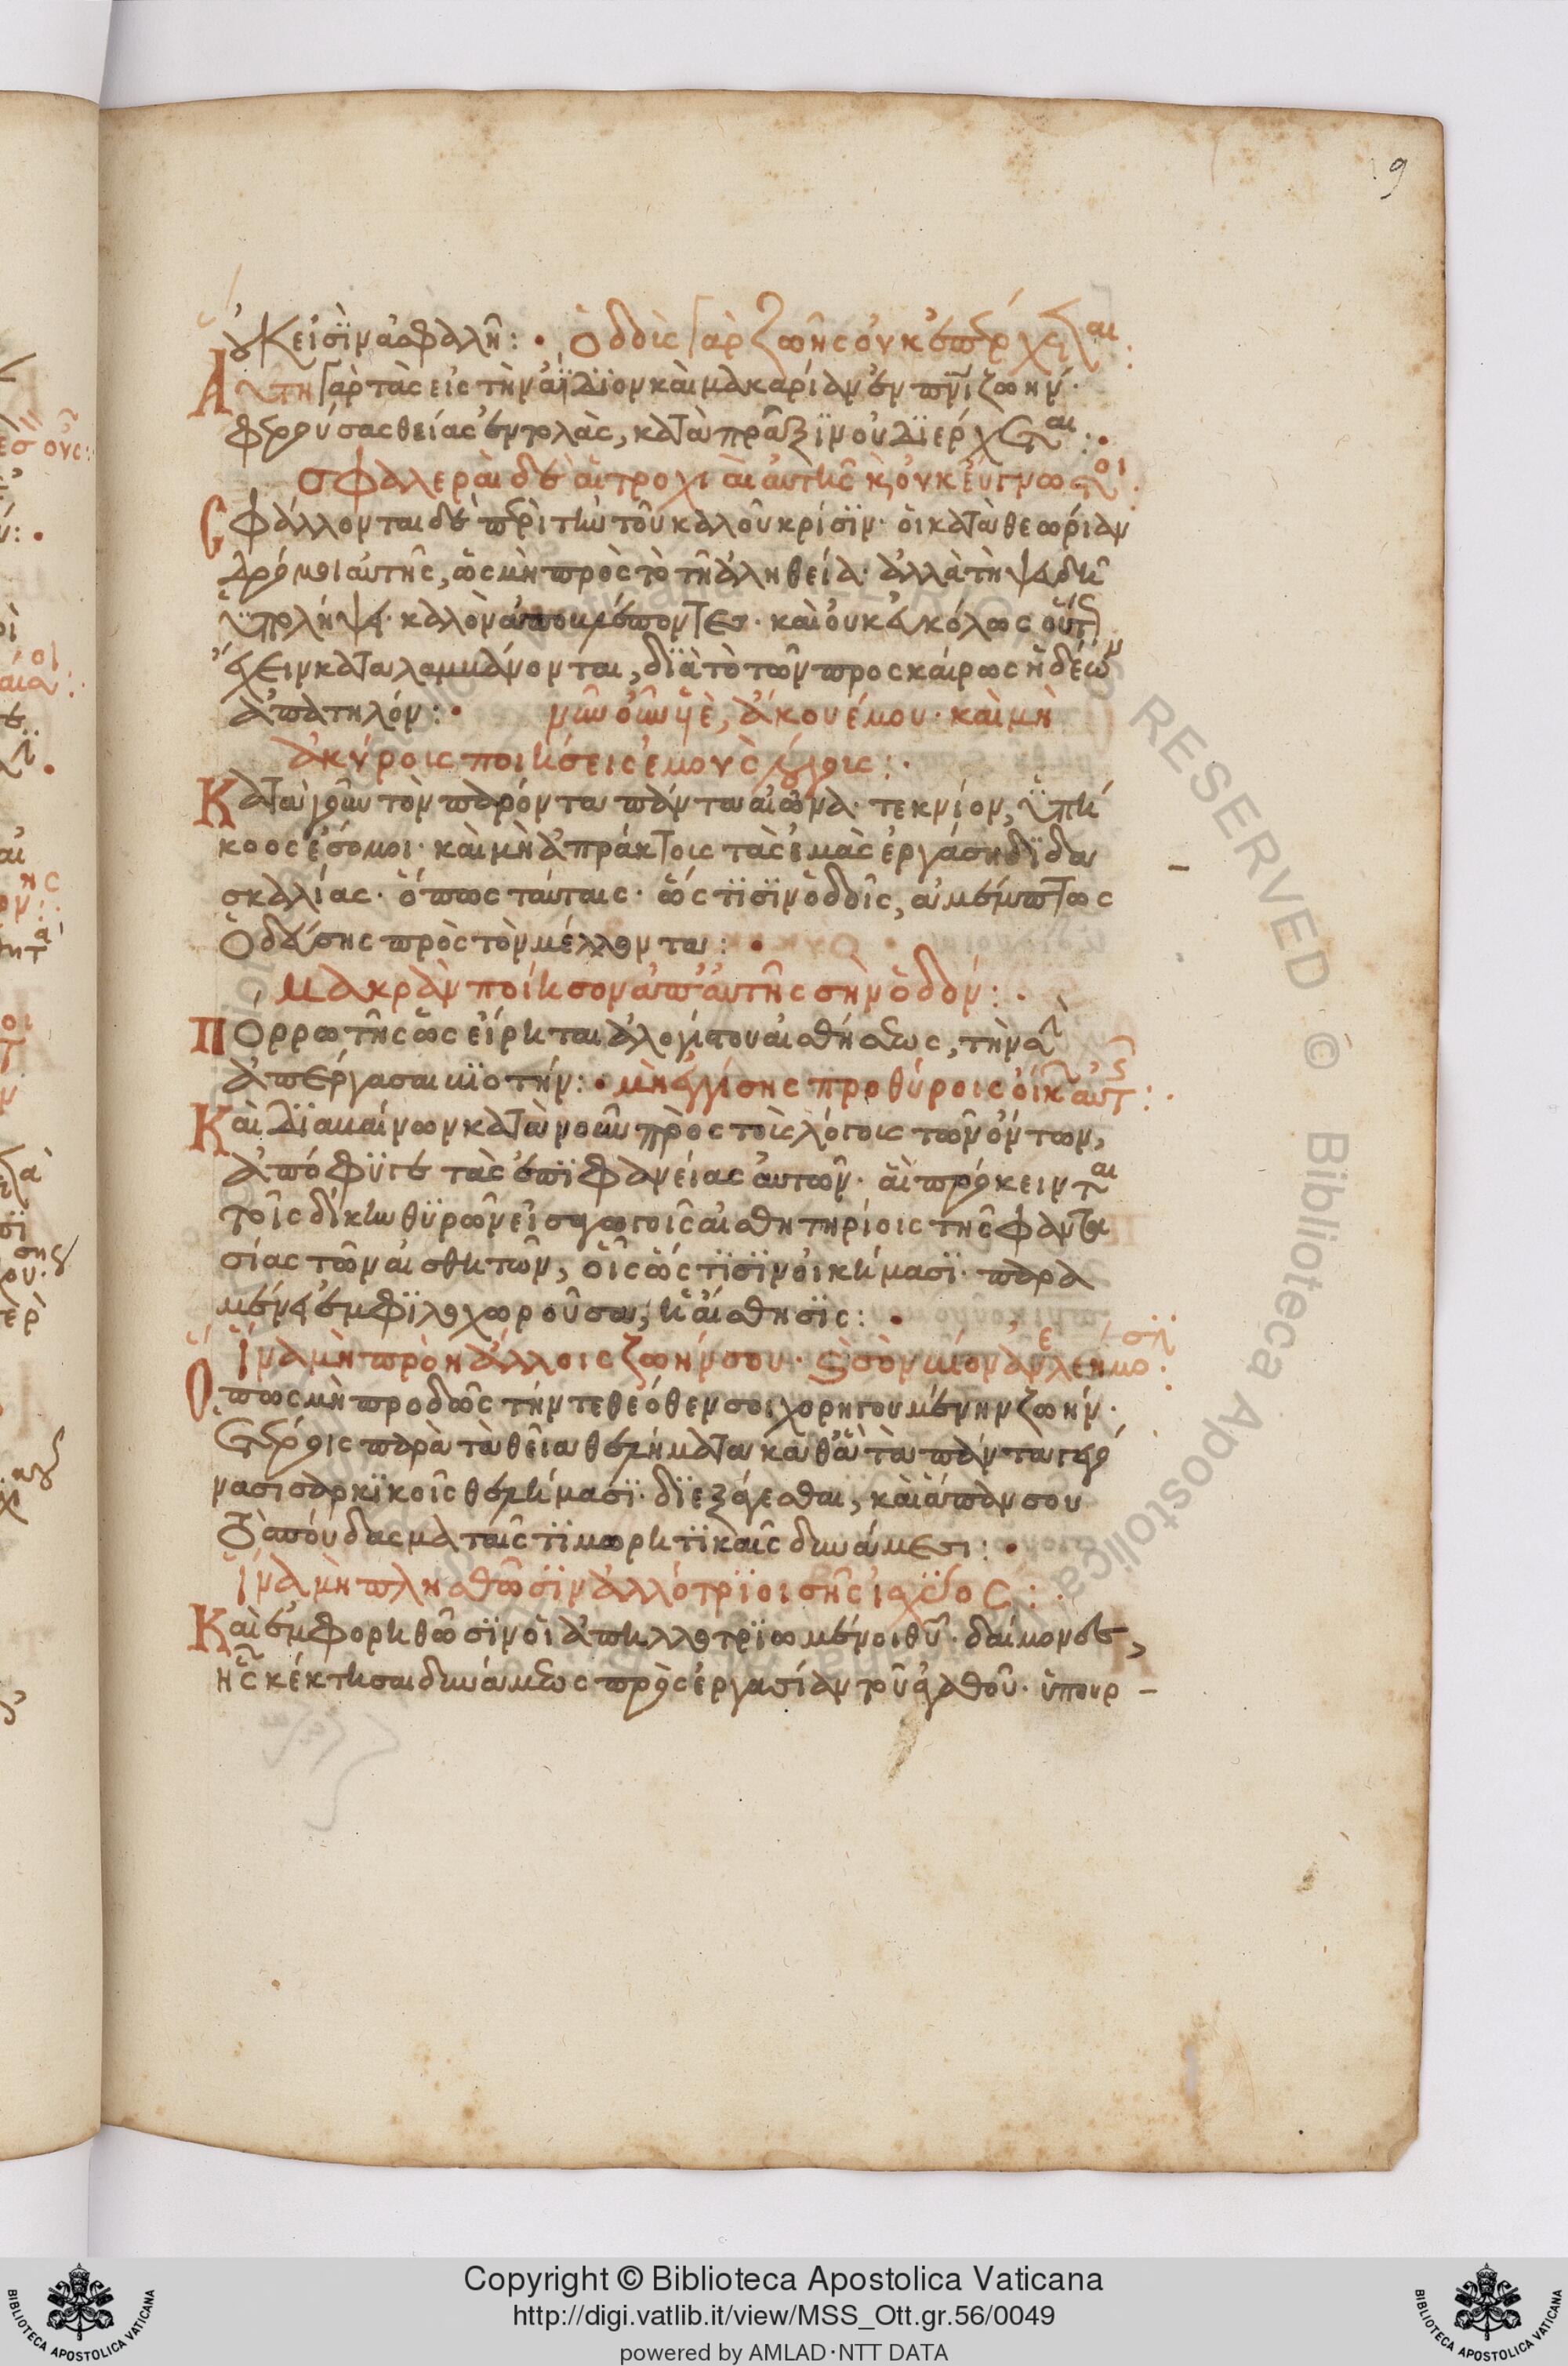 9
οὐκ εἰσὶν ἀσφαλῆ: • ὁδοὺς γὰρ ζωῆς οὐκ ἐπέρχεται:
Αὕτη γὰρ τὰς εἰς τὴν ἀΐδιον καὶ μακαρίαν ἐν πνι ζωὴν·
φερούσας θείας ἐντολὰς, κατὰ πρᾶξιν οὐ διέρχεται: •
σφαλεραὶ δὲ αἱ τροχιαὶ αὐτῆς κ, οὐκ εὔγνωστοι:
Σφάλλονται δὲ περὶ τὴν τοῦ καλοῦ κρίσιν· οἱ κατὰ θεωρίαν
δρόμοι αὐτῆς, ὡς μὴ πρὸς τὸ τῇ ἀληθεία· ἀλλὰ τῇ ψευδεῖ
ὑπολήψει· καλὸν ἀποβλέποντες· καὶ οὐκ εὐκόλως οὕτως
ἔχειν καταλαμβάνονται, διὰ τὸ τῶν προσκαίρως ἡδέων
ἀπατηλόν: • νῦν οὖν υἱὲ, ἄκουέ μου· καὶ μὴ
ἀκύρους ποιήσεις ἐμοὺς λόγους: ·
Κατὰ γοῦν τὸν παρόντα πάντα αἰῶνα· τεκνίον, ὑπή
κοος ἔσο μοι· καὶ μὴ ἀπράκτοις τὰς ἐμὰς ἐργάση διδα
σκαλίας· ὅπως ταύταις· ὥς τισιν ὁδοῖς, ἀμέμπτως
ὁδεύσης πρὸς τὸν μέλλοντα: •
μακρὰν ποίησον ἀπ' αὐτῆς σὴν ὁδόν: ·
Πόρρω τῆς ὡς εἴρηται ἀλογίστου αἰσθήσεως, τὴν σὴν
ἀπέργασαι βιοτήν: • μὴ ἐγγίσης προθύροις οἴκων αὐτῆς: ·
Καὶ διαβαίνων κατὰ νοῦν πρὸς τοὺς λόγους τῶν ὄντων,
ἀπόφυγε τὰς ἐπιφανείας αὐτῶν· αἳ πρόκεινται
τοῖς δίκην θυρῶν εἰσαγωγοῖς αἰσθητηρίοις τῆς φαντα
σίας τῶν αἰσθητῶν, οἷς ὥς τισιν οἰκήμασι· παρα
μένει ἐμφιλοχωροῦσα, ἡ αἴσθησις: •
ἵνα μὴ πρόη ἄλλοις ζωήν σου· ϛ σὸν βίον ἀνελεήμοσιν:
Ὅπως μὴ προδῶς τήν τε θεόθεν σοι χορηγουμένην ζωήν·
ἑτέροις παρὰ τὰ θεῖα θελήματα καθ' ἃ τὰ πάντα γεγό
νασι σαρκικοῖς θελήμασι· διεξάγεσθαι, καὶ ἅπαν σου
τὸ σπούδασμα ταῖς τιμωρητικαῖς δυνάμεσι: •
ἵνα μὴ πλησθῶσιν ἀλλότριοι σῆς ἰσχύος: ·
Καὶ ἐμφορηθῶσιν οἱ ἀπηλλοτριωμένοι θυ· δαίμονες,
ἧς κέκτησαι δυνάμεως πρὸς ἐργασίαν τοῦ ἀγαθοῦ· ὑπουρ –
Copyright © Biblioteca Apostolica Vaticana
http://digi.vatlib.it/view/MSS_Ott.gr.56/0049
powered by AMLAD·NTT DATA
BIBLIOTECA APOSTOLICA VATICANA
BIBLIOTECA APOSTOLICA VATICANA